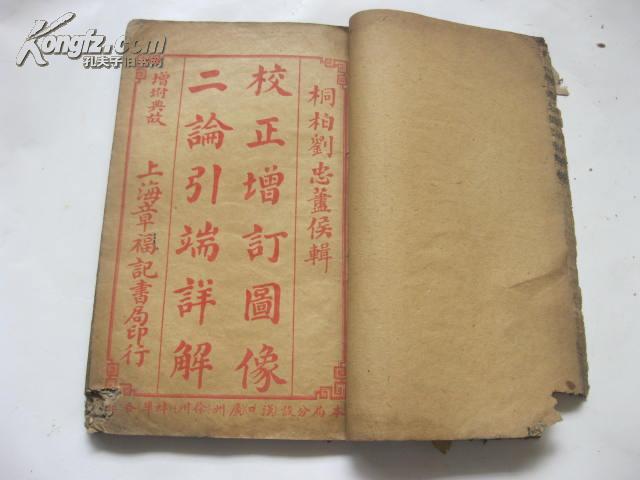 桐柏劉忠藎侯輯
校正增訂圖像
二論引端詳解
增附典故
上海章福記書局印行
本局分設漢口廣州徐州
Kongfz.com
孔夫子旧书网